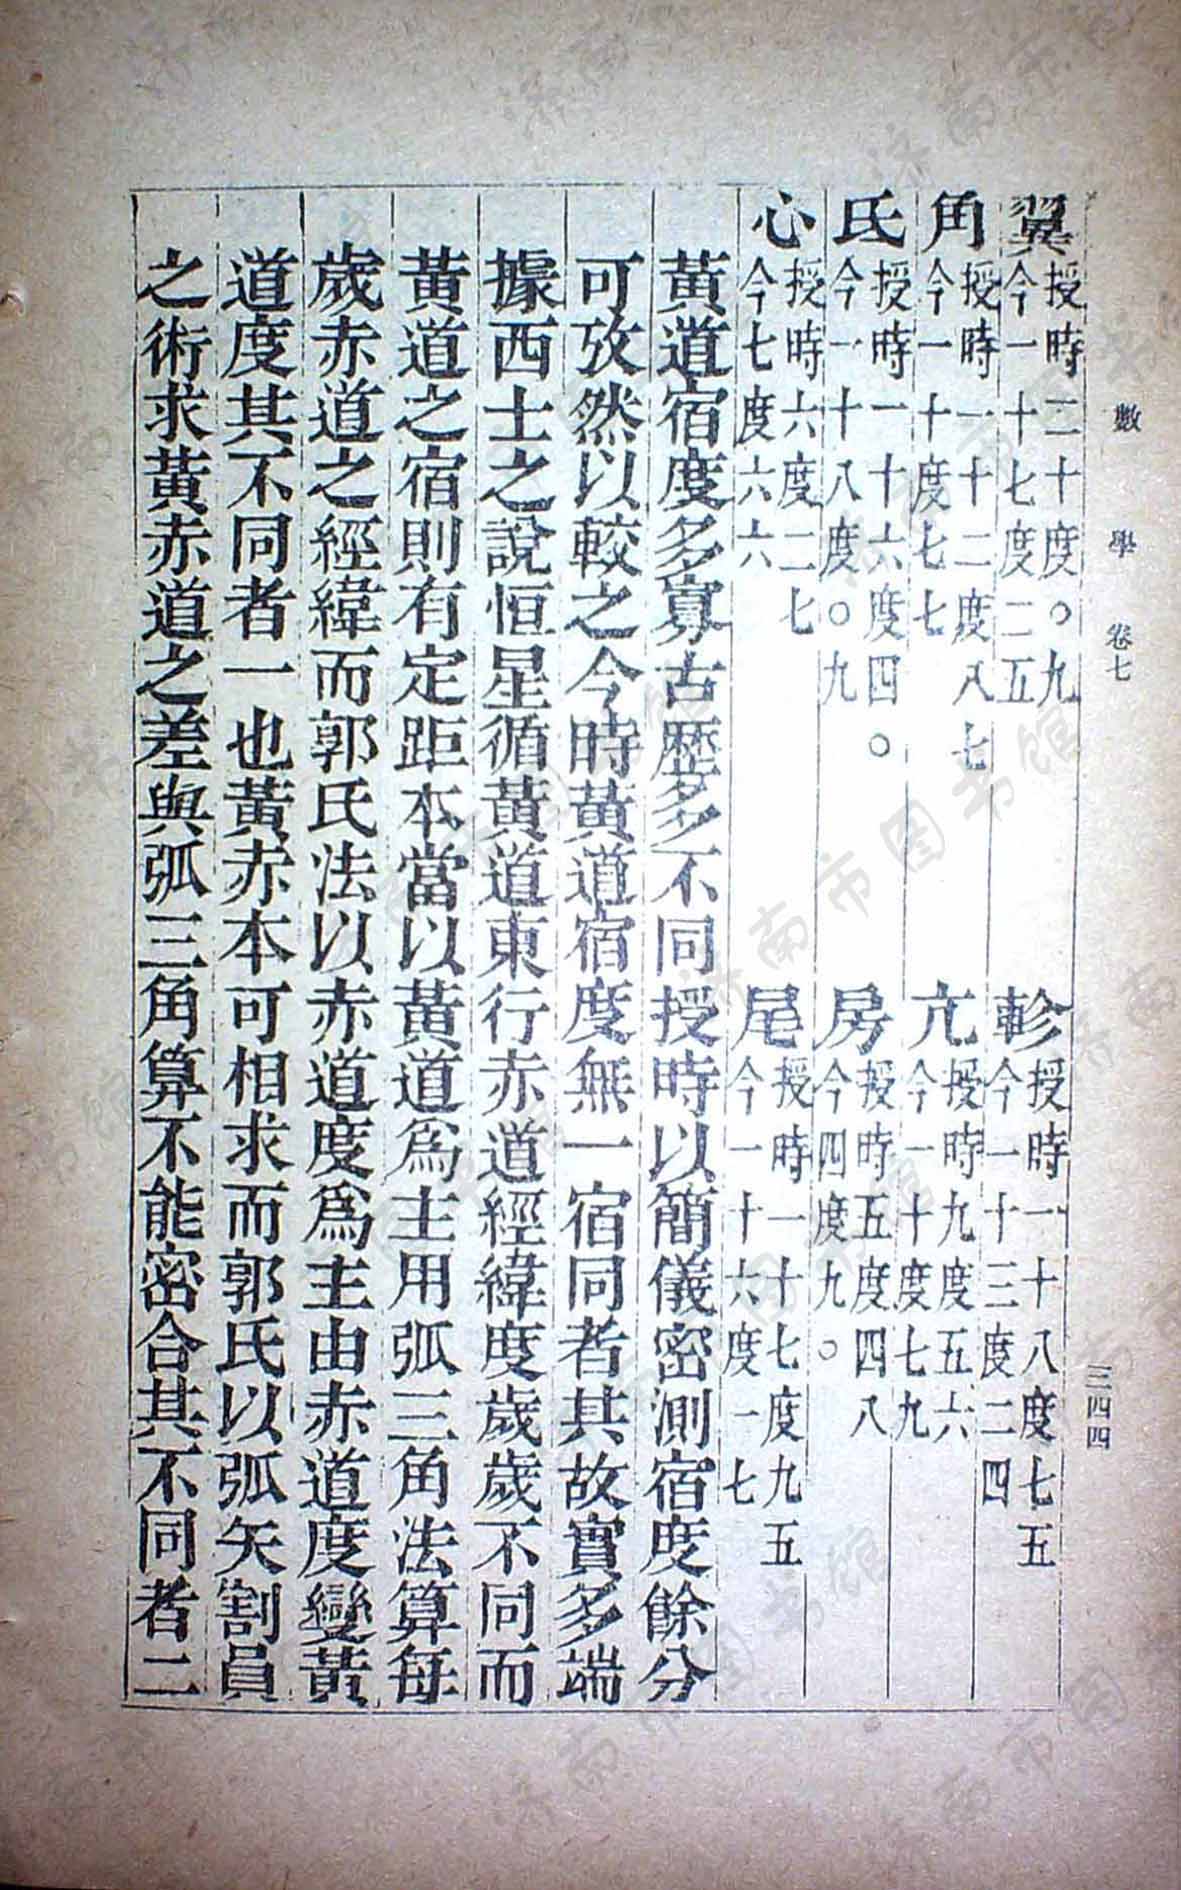 數學 卷七 三四四
翼 授時二十度〇九 今一十七度二五 軫 授時一十八度七五 今一十三度二四
角 授時一十二度八七 今一十度七七 亢 授時九度五六 今一十度七九
氐 授時一十六度四〇 今一十八度〇九 房 授時五度四八 今四度九〇
心 授時六度二七 今七度六六 尾 授時一十七度九五 今一十六度一七
黃道宿度多寡古歷多不同授時以簡儀密測宿度餘分
可攷然以較之今時黃道宿度無一宿同者其故實多端
據西士之說恒星循黃道東行赤道經緯度歲歲不同而
黃道之宿則有定距本當以黃道爲主用弧三角法算每
歲赤道之經緯而郭氏法以赤道度爲主由赤道度變黃
道度其不同者一也黃赤本可相求而郭氏以弧矢割員
之術求黃赤道之差與弧三角算不能密合其不同者二
济南市图书馆